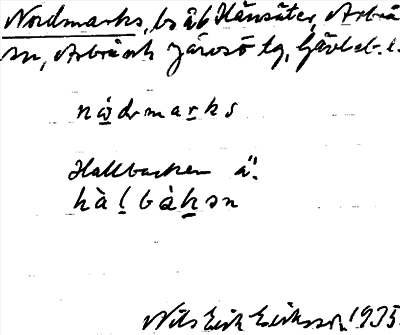 Nordmarks, bs åb Hänsäter, Arbrå
sn, Arbrå och Järvsö tg, Gävleb. l.
nọ̀dmarks
Hallbacken ä.
hàḷbàkən
Nils Erik Eriksson 1935